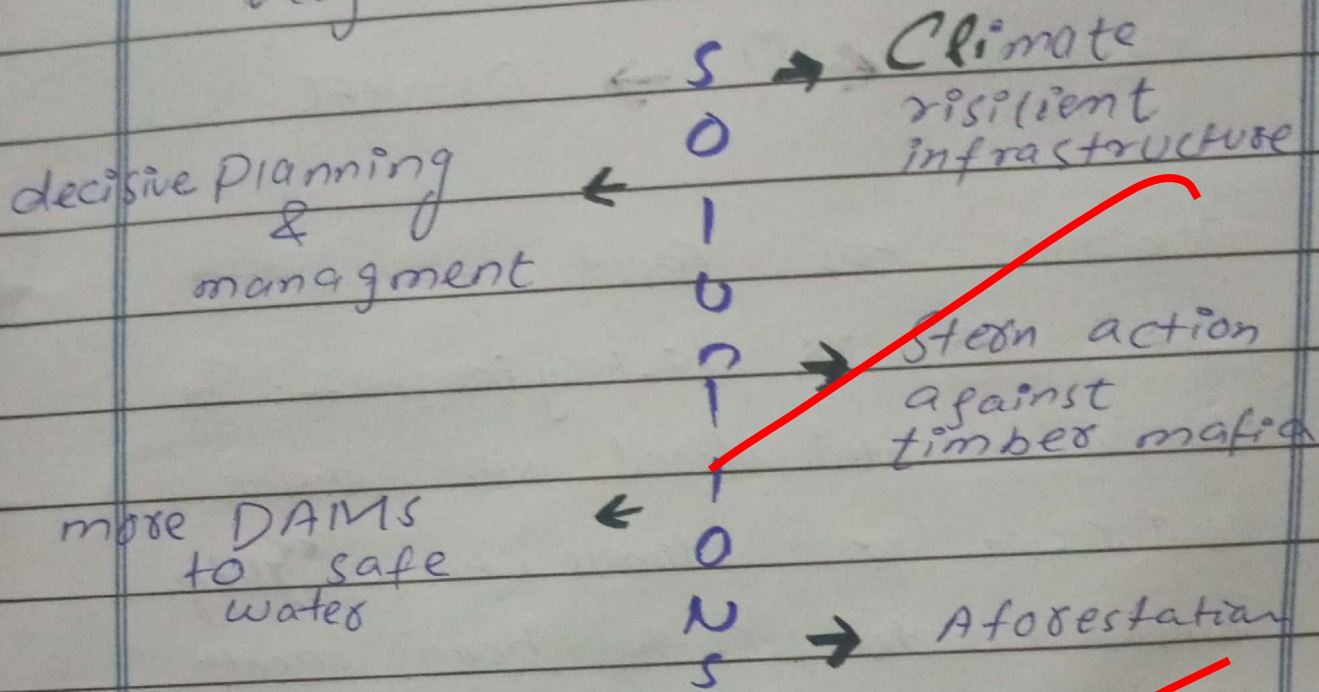 S
O
l
u
n
T
I
O
N
S
Climate
risilient
infrastructure
decisive planning
&
managment
Stern action
against
timber mafia
more DAMS
to safe
water
Aforestation